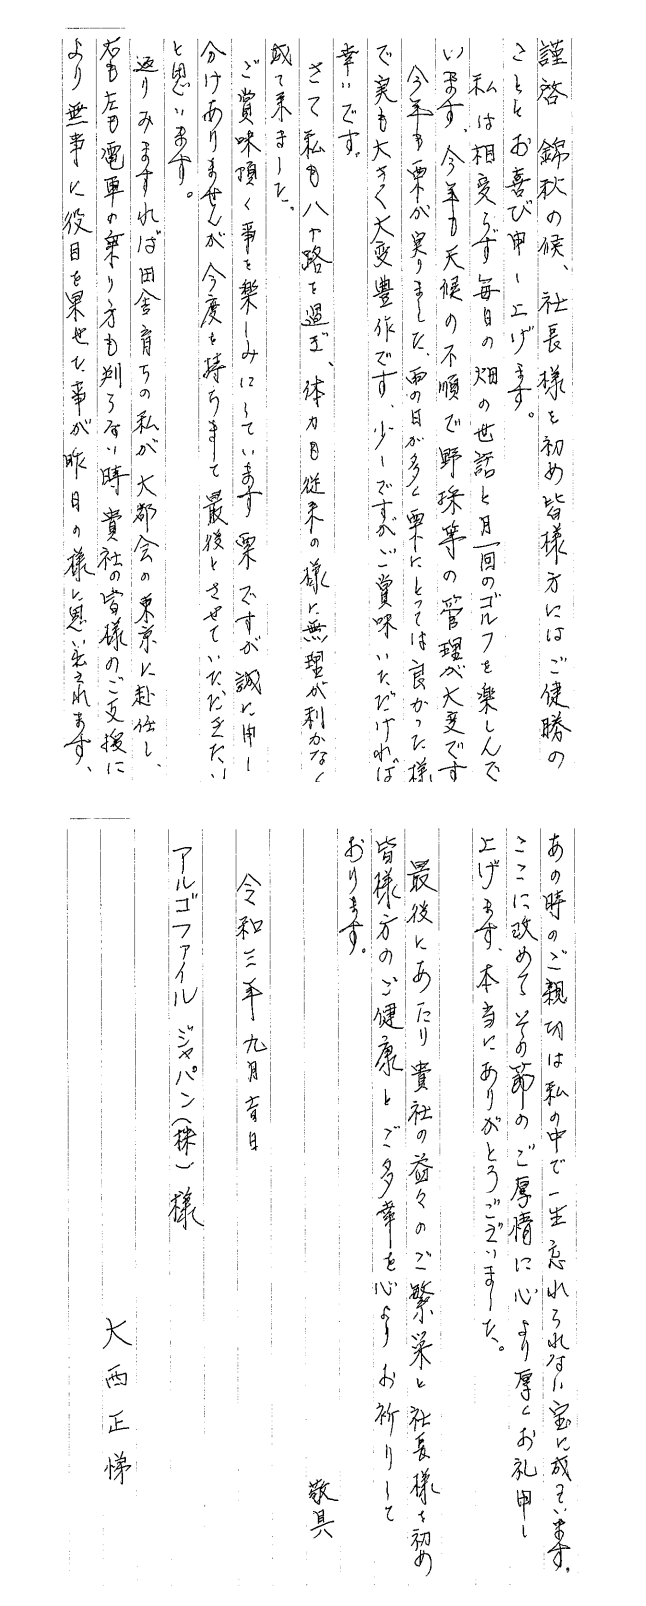 謹啓 錦秋の候、社長様を初め皆様方にはご健勝の
こととお喜び申し上げます。
私は相変らず毎日の畑の世話と月一回のゴルフを楽しんで
います。今年も天候の不順で野採等の管理が大変です
今年も栗が実りました、雨の日が多く栗にとっては良かった様
で実も大きく大変豊作です、少しですがご賞味いただければ
幸いです。
さて私も八十路を過ぎ、体力も従来の様に無理が利かなく
成て来ました、
ご賞味頂く事を楽しみにしています栗ですが誠に申し
分けありませんが今度を持ちまして最後とさせていただきたい
と思います。
返りみますれば田舎育ちの私が大都会の東京に赴任し、
右も左も電車の乗り方も判らない時貴社の皆様のご支援に
より無事に役目を果せた事が昨日の様に思い出されます、
あの時のご親切は私の中で一生忘れられない宝に成ています。
ここに改めてその節のご厚情に心より厚くお礼申し
上げます、本当にありがとうございました。
最後にあたり貴社の益々のご繁栄と社長様を初め
皆様方のご健康とご多幸を心よりお祈りして
おります。
敬具
令和三年九月吉日
アルゴファイル ジャパン(株) 様
大西正悌